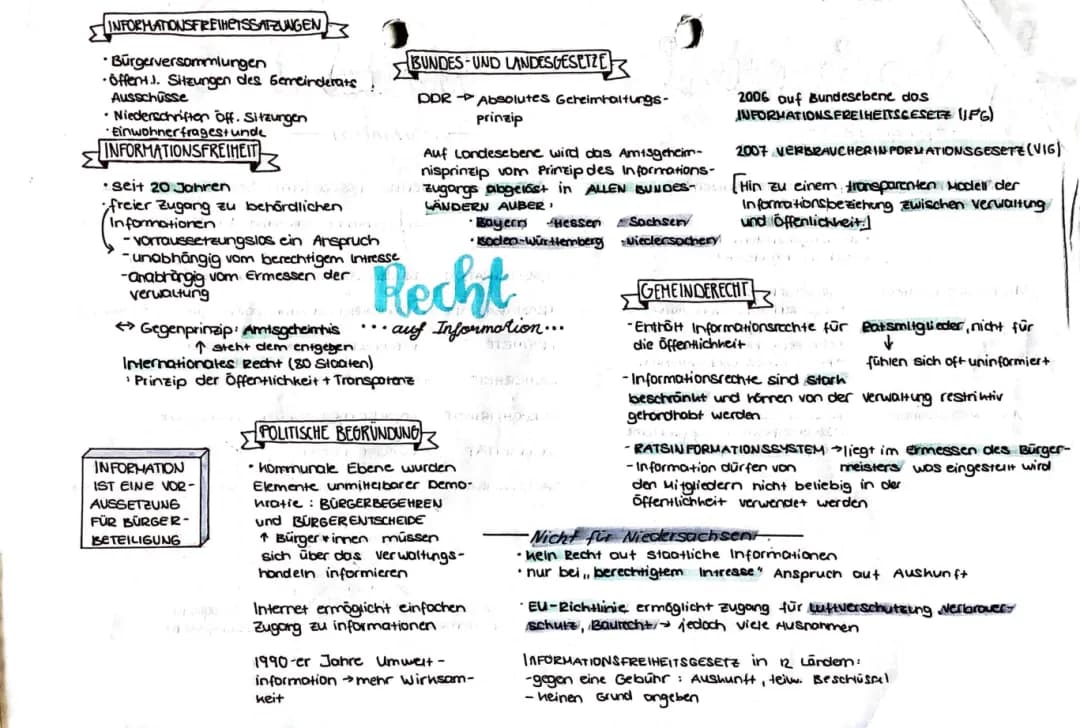 INFORMATIONSFREIHEITSSATZUNGEN
• Bürgerversammlungen
• öffentl. Sitzungen des Gemeinderats,
Ausschüsse
• Niederschriften öff. Sitzungen
• Einwohnerfragestunde
INFORMATIONSFREIHEIT
• seit 20 Jahren
• freier Zugang zu behördlichen
Informationen
- vorraussetzungslos ein Anspruch
- unabhängig vom berechtigem Intresse
- unabhängig vom Ermessen der
verwaltung
↔ Gegenprinzip: Amtsgeheimnis
↑ steht dem entgegen
Internationales Recht (80 Staaten)
• Prinzip der Öffentlichkeit + Transparenz
BUNDES- UND LANDESGESETZE
DDR → Absolutes Geheimhaltungs-
prinzip
Auf Landesebene wird das Amtsgeheim-
nisprinzip vom Prinzip des Informations-
zugangs abgelöst in ALLEN BUNDES-
LÄNDERN AUßER:
• Bayern - Hessen - Sachsen
• Baden-Württemberg - Niedersachen
2006 auf Bundesebene das
INFORMATIONSFREIHEITSGESETZ (IFG)
2007 VERBRAUCHERINFORMATIONSGESETZ (VIG)
[Hin zu einem transparenten Modell der
Informationsbeziehung zwischen verwaltung
und Öffenlichkeit]
Recht
... auf Information...
GEMEINDERECHT
- Enthält Informationsrechte für Ratsmitglieder, nicht für
die Öffentlichkeit
↓
fühlen sich oft uninformiert
- Informationsrechte sind stark
beschränkt und können von der verwaltung restriktiv
gehandhabt werden
- RATSINFORMATIONSSYSTEM → liegt im ermessen des Bürger-
meisters was eingestellt wird
- Information dürfen von
den Mitgliedern nicht beliebig in der
Öffentlichkeit verwendet werden
POLITISCHE BEGRÜNDUNG
• Kommunale Ebene wurden
Elemente unmittelbarer Demo-
kratie: BÜRGERBEGEHREN
und BÜRGERENTSCHEIDE
↑ Bürger*innen müssen
sich über das verwaltungs-
handeln informieren
Internet ermöglicht einfachen
Zugang zu informationen
1990-er Jahre Umwelt-
information → mehr Wirksam-
keit
INFORMATION
IST EINE VOR-
AUSSETZUNG
FÜR BÜRGER-
BETEILIGUNG
Nicht für Niedersachsen
• kein Recht auf staatliche Informationen
• nur bei „berechtigtem Intresse" Anspruch auf Auskunft
• EU-Richtlinie ermöglicht zugang für Luftverschutzung, verbrauer-
schutz, Baurecht → jedoch viele Ausnahmen
INFORMATIONSFREIHEITSGESETZ in 12 Ländern:
- gegen eine Gebühr: Auskunft, teilw.
- keinen Grund angeben